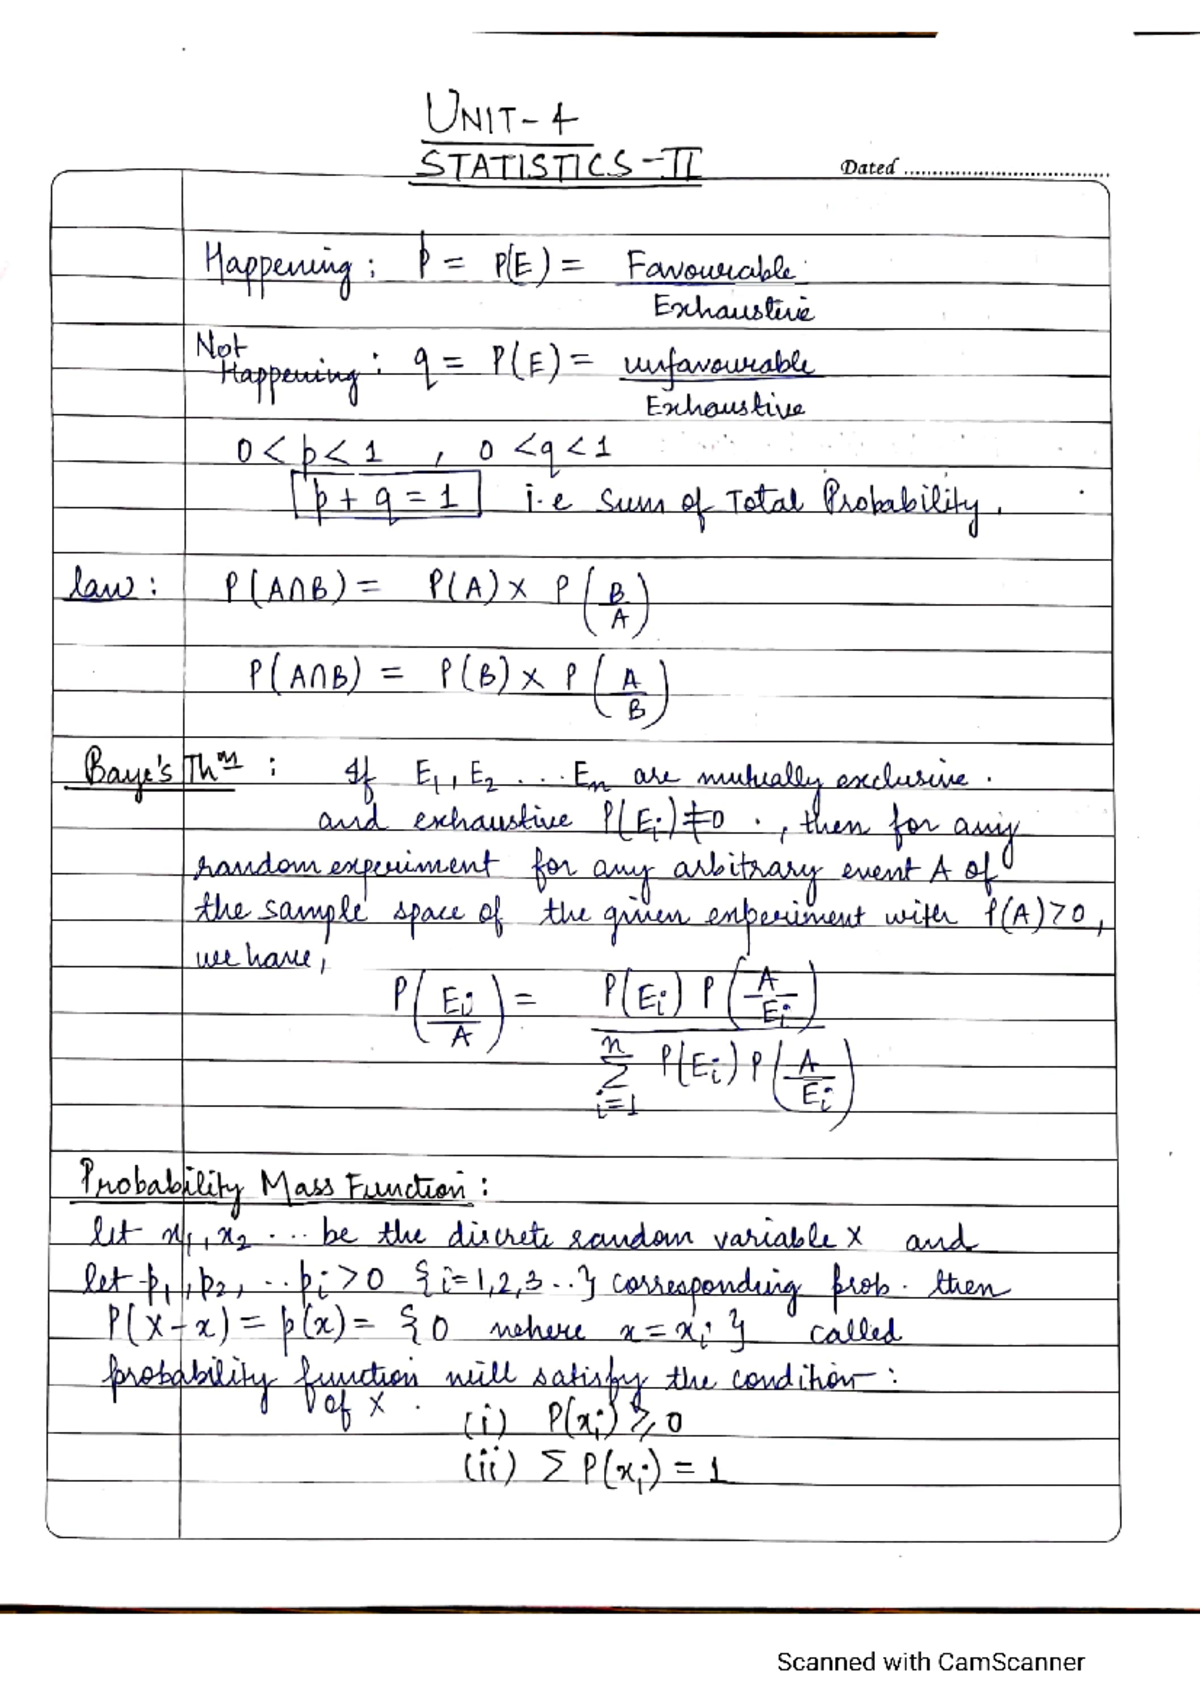 UNIT-4
STATISTICS-II
Dated
Happening : p = P(E) = Favourable
Exhaustive
Not
Happening : q = P(E) = unfavourable
Exhaustive
0 < p < 1 , 0 < q < 1
p + q = 1 i.e Sum of Total Probability.
law : P(A∩B) = P(A) x P(B/A)
P(A∩B) = P(B) x P(A/B)
Baye's Thm : If E1, E2 ... En are mutually exclusive.
and exhaustive P(Ei) ≠ 0 ., then for any
random experiment for any arbitrary event A of
the sample space of the given experiment with P(A)>0,
we have,
P(Ei/A) = P(Ei) P(A/Ei)
n
Σ P(Ei) P(A/Ei)
i=1
Probability Mass Function :
let x1, x2 ... be the discrete random variable X and
let p1, p2, .. pi > 0 {i=1,2,3..} corresponding prob. then
P(X-x) = p(x) = {0 where x = xi } called
probability function will satisfy the condition :
of X .
(i) P(xi) ≥ 0
(ii) Σ P(xi) = 1
Scanned with CamScanner